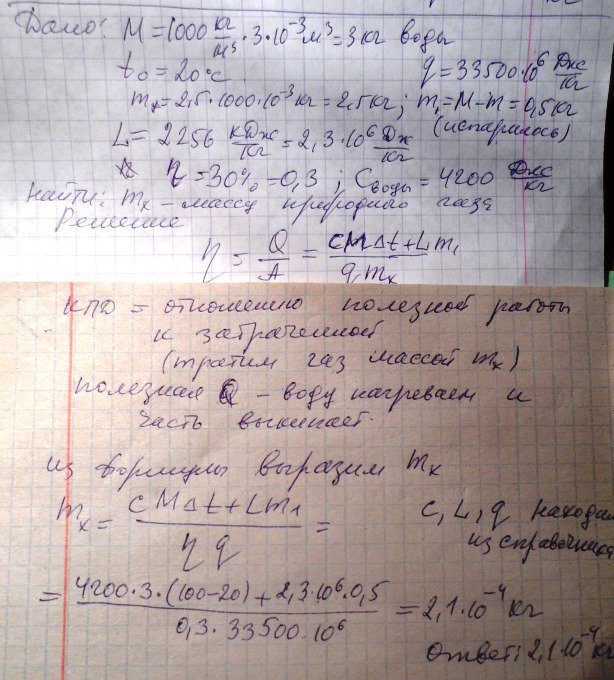 Дано: M = 1000 кг/м³ · 3 · 10⁻³ м³ = 3 кг воды
t₀ = 20°C q = 33500 · 10⁶ Дж/кг
m = 2,5 · 1000 · 10⁻³ кг = 2,5 кг; m₁ = M − m = 0,5 кг
(испарилось)
L = 2256 кДж/кг = 2,3 · 10⁶ Дж/кг
η = 30% = 0,3; Cводы = 4200 Дж/кг
Найти: mₓ – массу природного газа
Решение
η = Q/A = (cMΔt + Lm₁)/(q mₓ)
КПД = отношению полезной работы
к затраченной
(тратим газ массой mₓ)
полезная Q – воду нагреваем и
часть выкипает.
из формулы выразим mₓ
mₓ = (cMΔt + Lm₁)/(η q) = c, L, q находим
из справочника
= (4200 · 3 · (100−20) + 2,3 · 10⁶ · 0,5)/(0,3 · 33500 · 10⁶) = 2,1 · 10⁻⁴ кг
Ответ: 2,1 · 10⁻⁴ кг